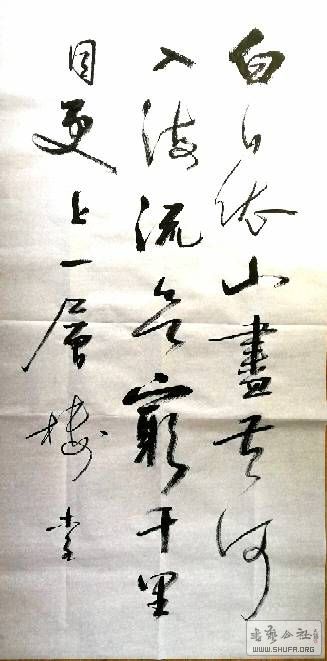 白日依山盡黃河
入海流欲窮千里
目更上一層樓
書藝公社
WWW.SHUFA.ORG